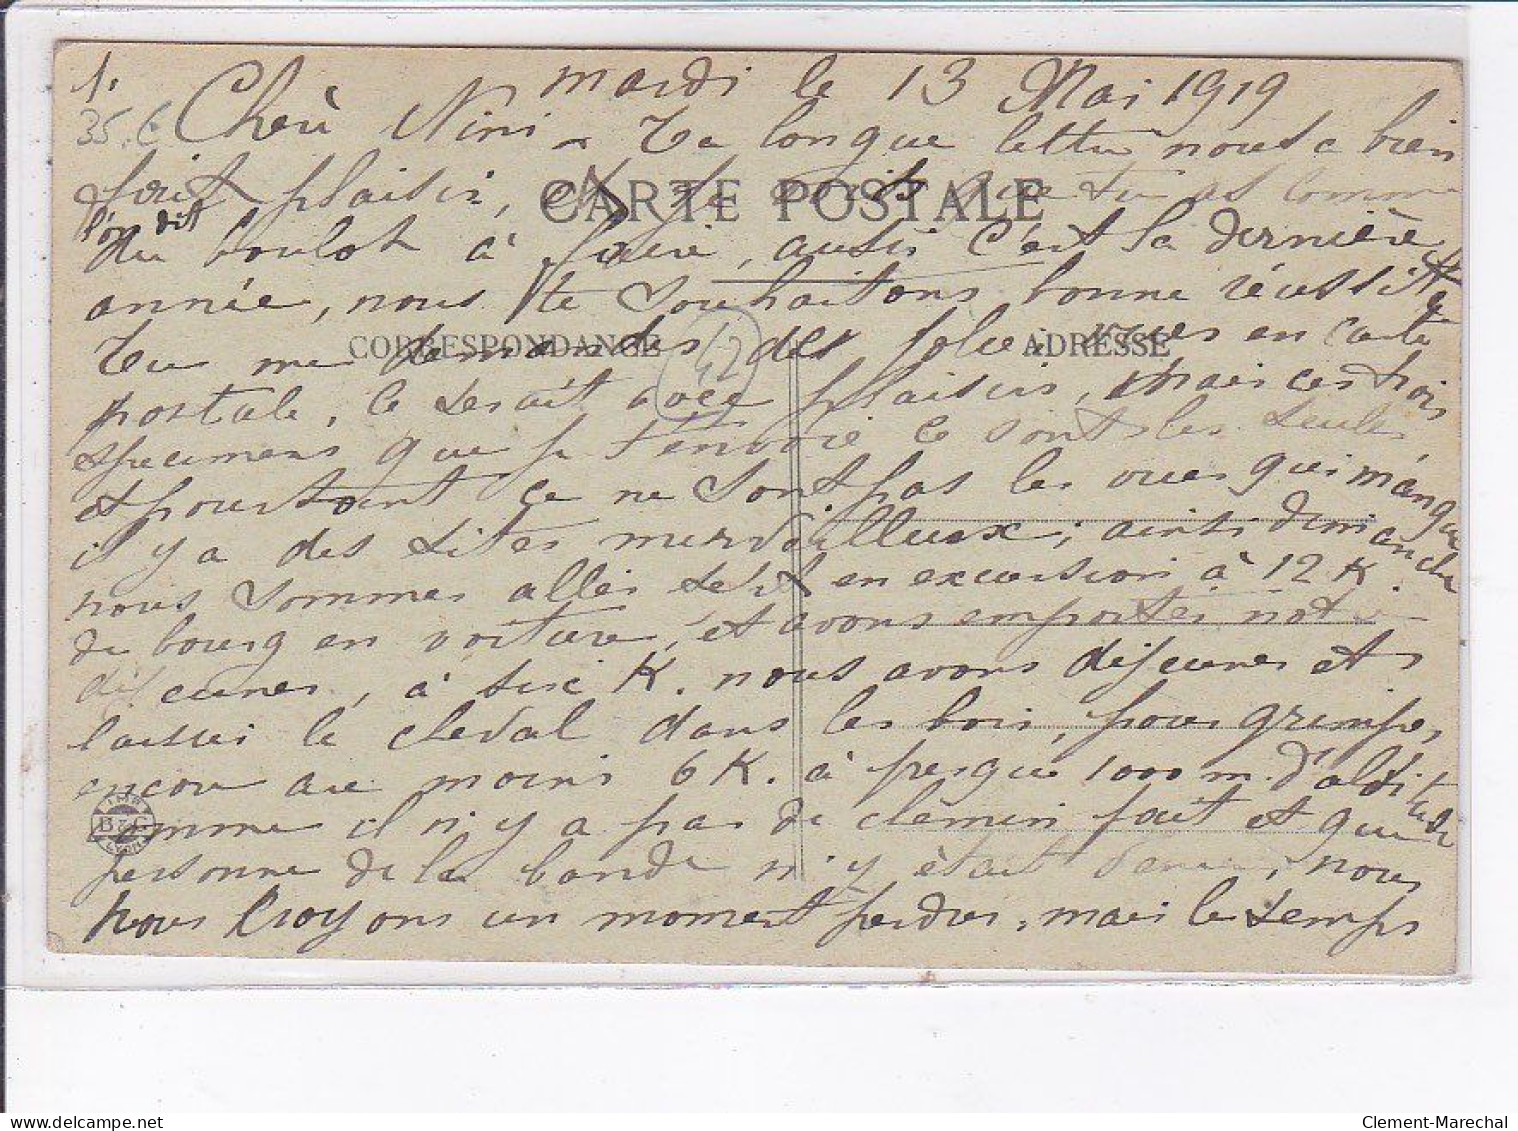 1. mardi le 13 Mai 1919
35.6 Chère Nini - Ta longue lettre nous a bien
fait plaisir, et je vois que tu as comme
l'on dit
CARTE POSTALE
du boulot à faire, aussi c'est la dernière
année, nous te souhaitons bonne réussite
Tu me demandes des jolies vues en carte
CORRESPONDANCE 42 ADRESSE
postale, ce serait avec plaisir, mais ces trois
specimens que je t'envoie ce sont les seules
et pourtant ce ne sont pas les vues qui manque
il y a des sites merveilleux; ainsi dimanche
nous sommes allés en excursion à 12 K.
du bourg en voiture, et avons emportés notre
déjeuner, à six K. nous avons déjeuner et
laisser le cheval dans les bois, pour grimper
encore au moins 6 K. à presque 1000 m. d'altitude
IMP B & G LYON
comme il n'y a pas de chemin fait et que
personne de la bande n'y était venu, nous
nous croyons un moment perdus, mais le temps
Delcampe.net
Clement-Marechal